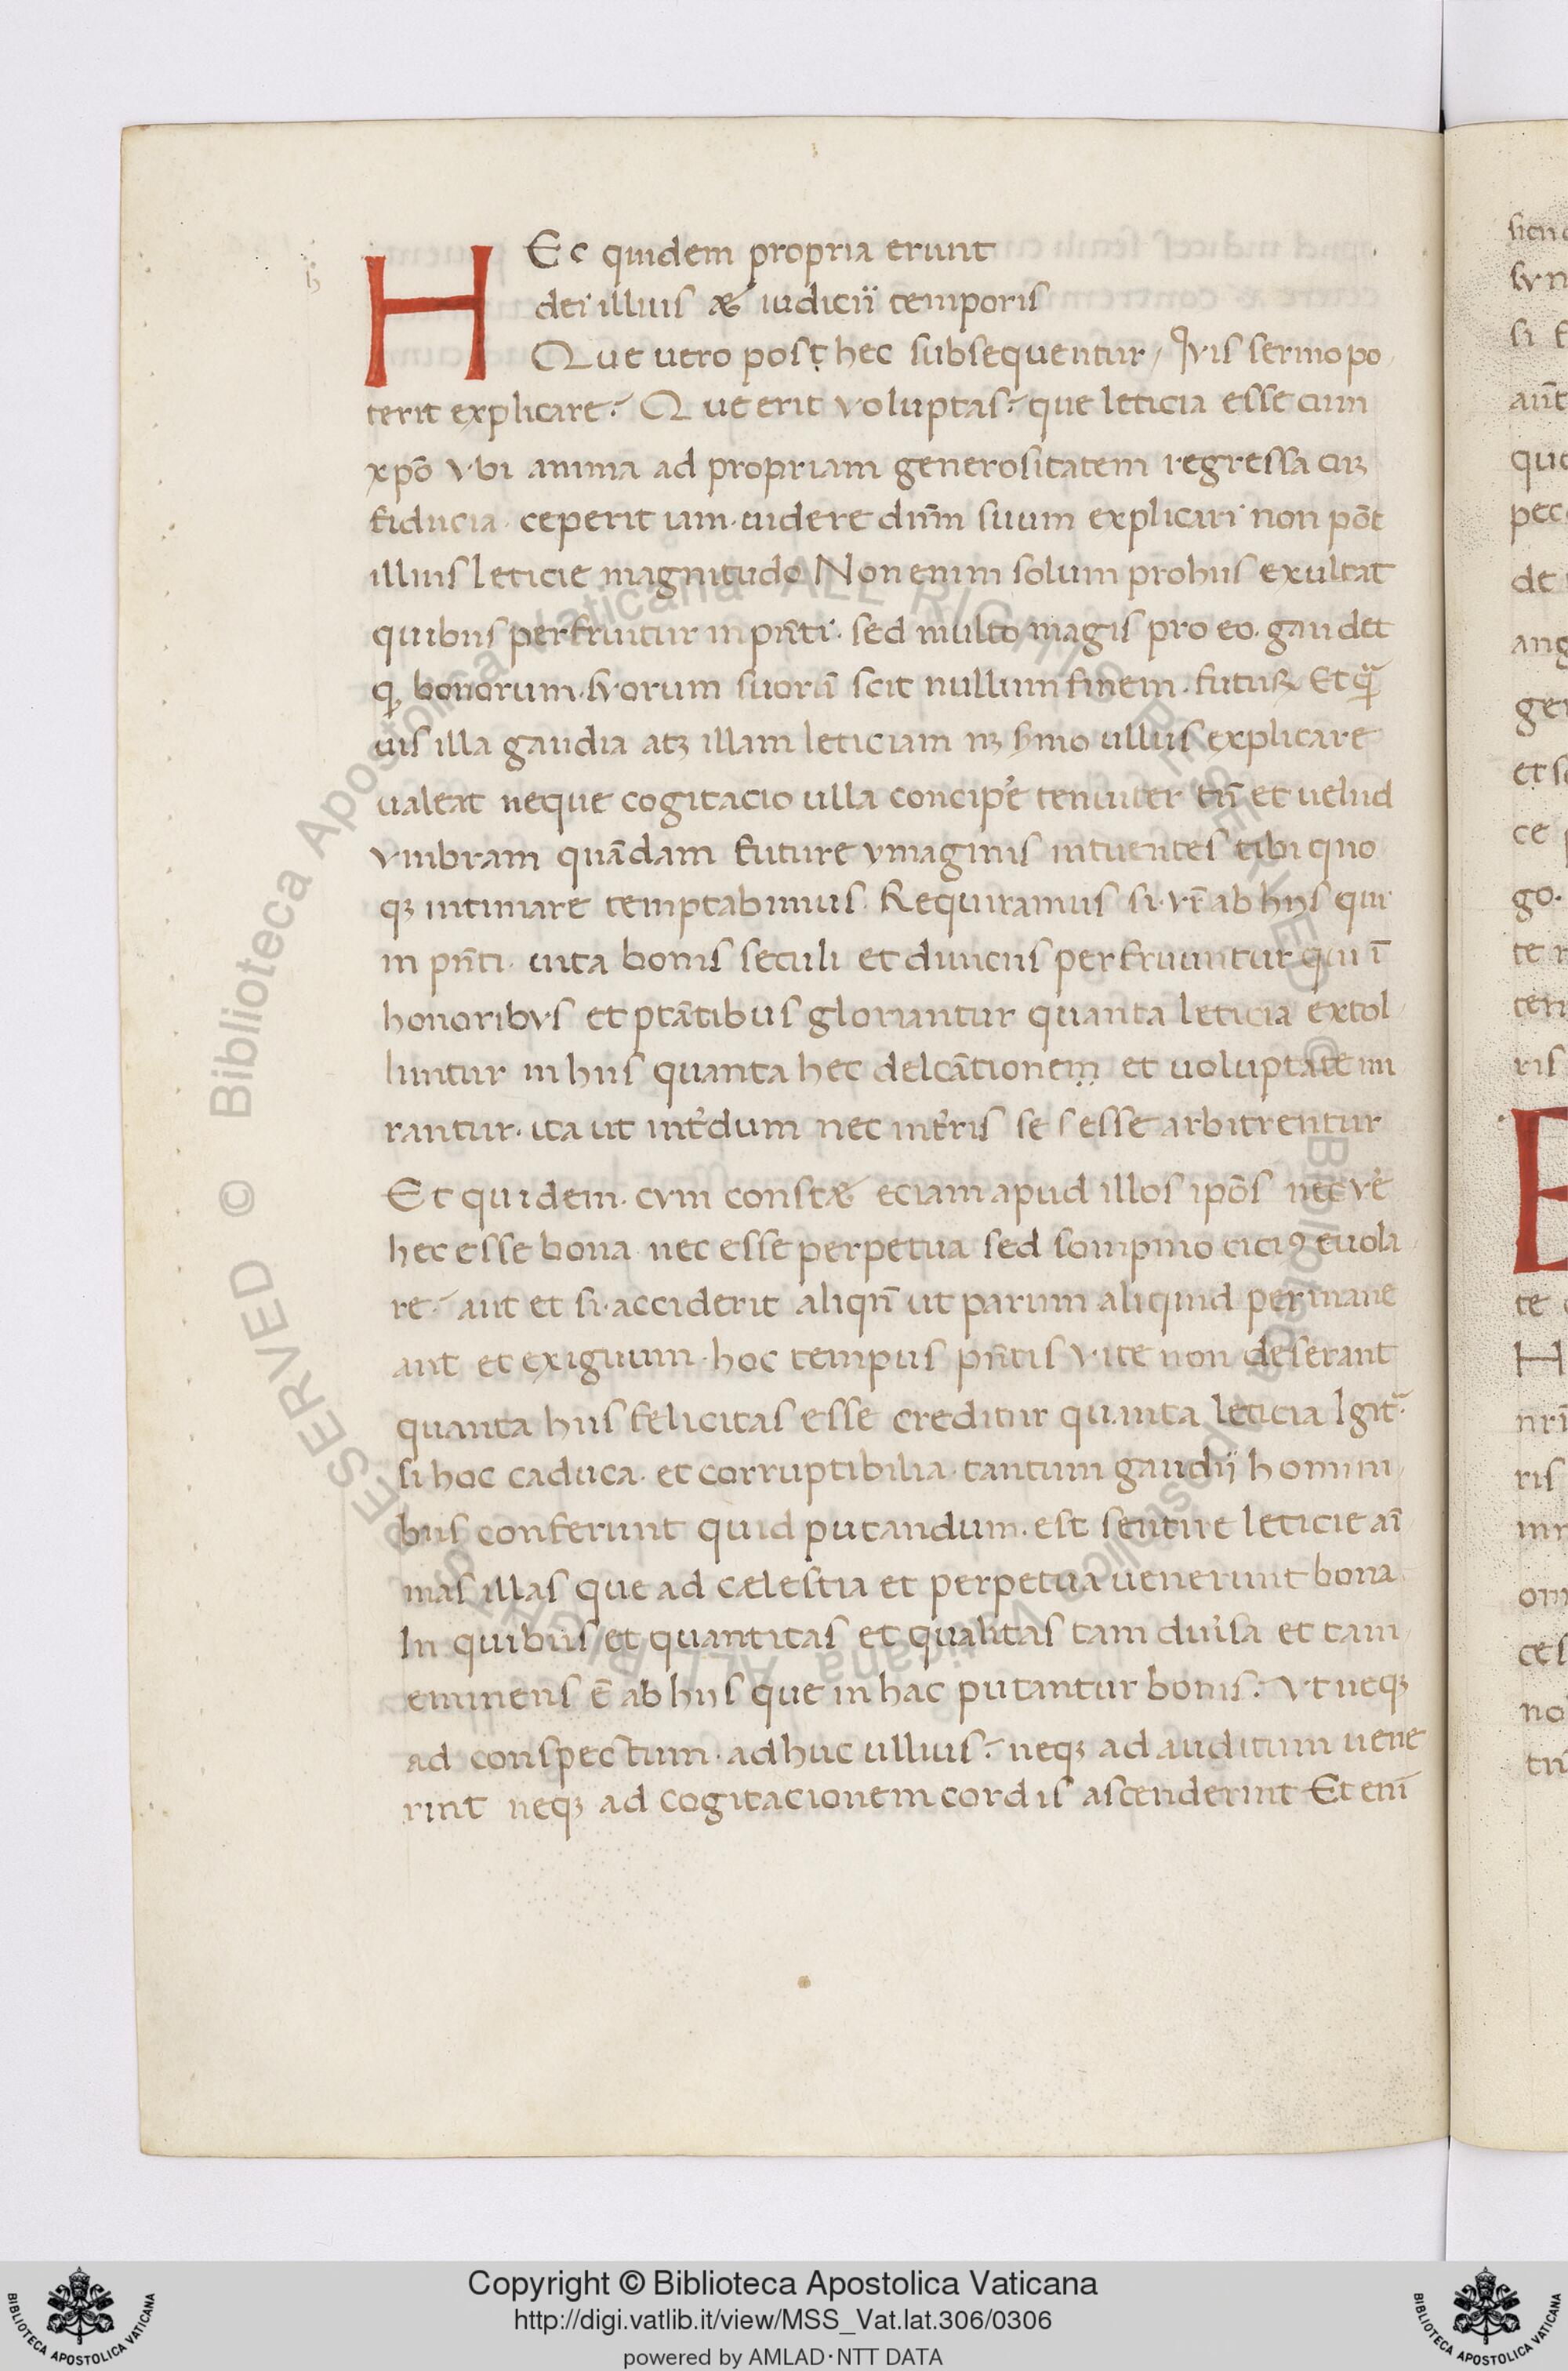 HEc quidem propria erunt
dei illius æ iudicii temporis
Que uero post hec subsequentur / Qvis sermo po
terit explicare? Que erit voluptas? que leticia esse cum
xpō vbi anima ad propriam generositatem regressa cuꝫ
fiducia · ceperit iam · uidere dnm̄ suum explicari non pōt
illius leticie magnitudo Non enim solum pro hiis exultat
quibus perfruitur in pn̄ti · sed multo magis pro eo · gaudet
ꝙ bonorum · svorum suorū scit nullum finem · futuꝝ Et qᷓ
uis illa gaudia atꝫ illam leticiam nꝫ s̄mo ullus explicare
ualeat neque cogitacio ulla concip̄e tenuiter tn̄ et uelud
vmbram quādam future ymaginis intuentes tibi quo
qꝫ intimare temptabimus · Requiramus si · vr̄ ab hijs qui
in pn̄ti · uita bonis seculi et diuiciis perfruuntur qui ī
honoribvs et ptātibus gloriantur quanta leticia extol
luntur in hiis quanta hec delcātionem et uoluptate mi
rantur · ita ut int̄dum nec int̄ris se s esse arbitrentur
Et quidem · cvm constæ eciam apud illos ipōs nec ve᷑
hec esse bona nec esse perpetua sed sompnio citiꝰ euola
re? aut et si · acciderit aliqn̄ ut parum aliquid permane
ant et exiguum · hoc tempus pn̄tis vite non deserant
quanta hiis felicitas esse creditur quanta leticia Igit᷑ ·
si hoc caduca · et corruptibilia · tantum gaudij homini
bus conferunt quid putandum · est sentire leticie aī
mas illas que ad cælestia et perpetua uenerunt bona
In quibus et quantitas et qualitas tam diu̓sa et tam
eminens ē ab hijs que in hac putantur bonis? Vt neqꝫ
ad conspectum · adhuc ullius? neqꝫ ad auditum uene
rint neqꝫ ad cogitacionem cordis ascenderint Et enī
Copyright © Biblioteca Apostolica Vaticana
http://digi.vatlib.it/view/MSS_Vat.lat.306/0306
powered by AMLAD·NTT DATA